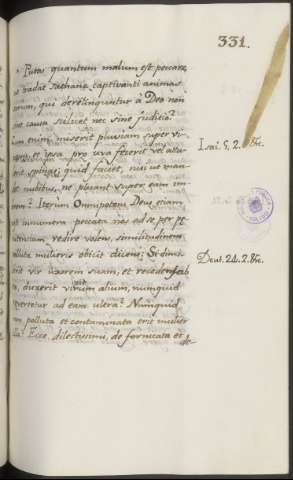 331.
Putas quantum malum est peccare,
ut tradat sathanæ captivanti animas
eorum, qui derelinquntur a Deo non
sine causa scilicet nec sine judicio?
enim miserit pluviam super vi-
neam, et ipsa pro uva fecerit vel attu-
lerit spinas; quid faciet, nisi ut man-
det nubibus, ne pluant super eam im-
brem? Iterum Omnipotens Deus etiam
innumera peccata nos ad se per pœ-
nitentiam redire volens, similitudinem
pollutæ mulieris obicit dicens: Si dimi-
serit vir uxorem suam, et recedens ab
duxerit virum alium, nunquid
revertetur ad eam ultra? Nunquid
non polluta et contaminata erit mulier
illa? Ecce, dilectissimi, de fornicata et
Isai. 5. 2. &c.
Deut. 24. 2. &c.